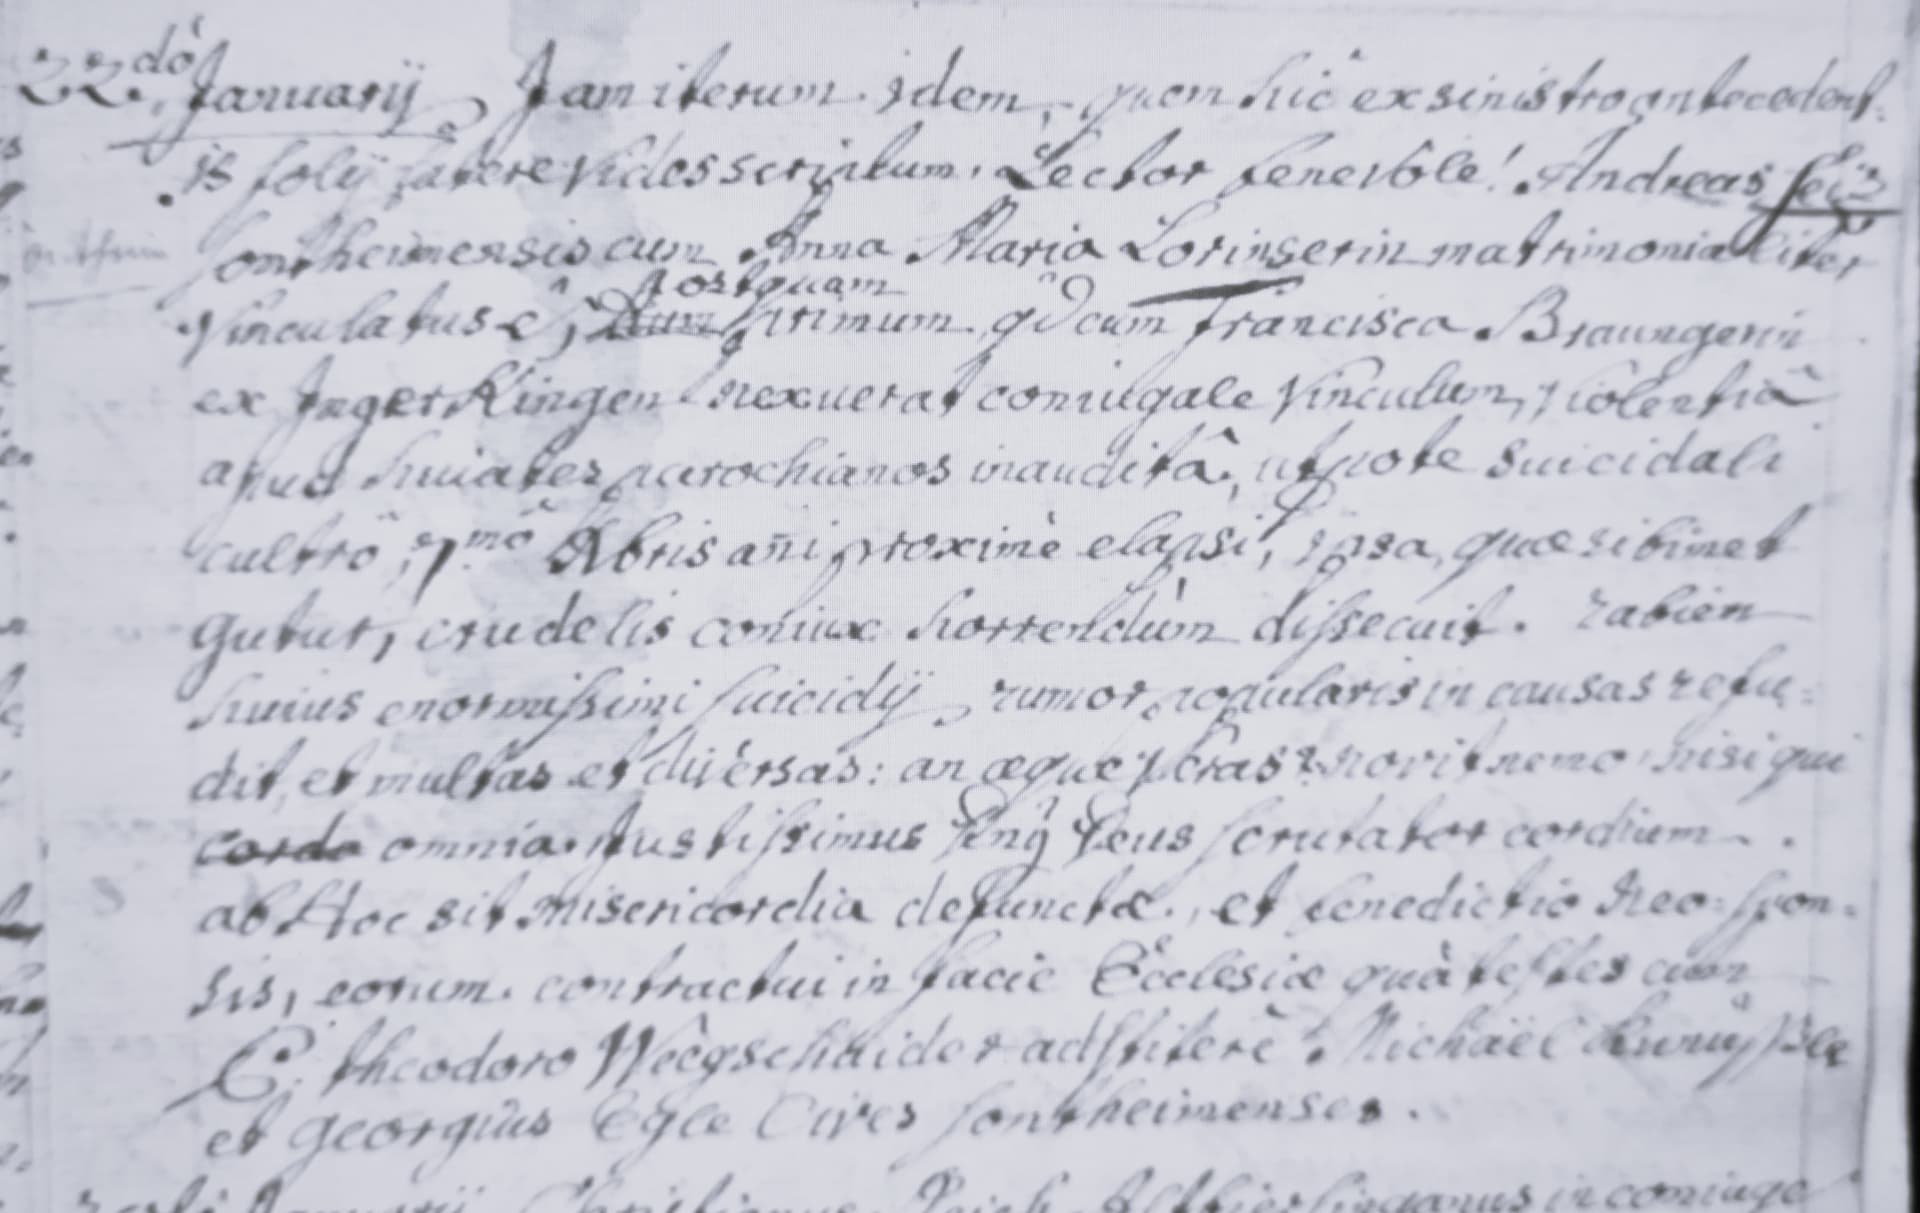 22.dò Januarij Jam iterum idem, quem hic ex sinistro antecedent-
is folij latere vides scriptum, Lector benevole! Andreas
Sontheimensis cum Anna Maria Lorinserin matrimonialiter
vinculatus ê, dum postquam primum qd cum Francisca Braungerin
ex Ingerkingen nexuerat coniugale vinculum, violentiâ
apud huiates parochianos inauditâ, utpote suicidali
cultro, 7.mo Xbris añi proximè elapsi, ipsa, quæ sibimet
gutur, crudelis coniux horrendùm dissecuit. rabiem
huius enormissimi suicidij, rumor popularis in causas refu-
dit, et multas et diversas: an æque veras? novit nemo nisi qui
corda omnia justissimus Deus scrutator cordium.
ab Hoc sit misericordia defunctæ, et benedictio Neo-spon-
sis, eorum contractui in facie Ecclesiæ quà testes cum
C. Theodoro Weegschaider adstitere Michaël
et Georgius Egle Cives Sontheimenses.
Januarij Christianus in coniuge